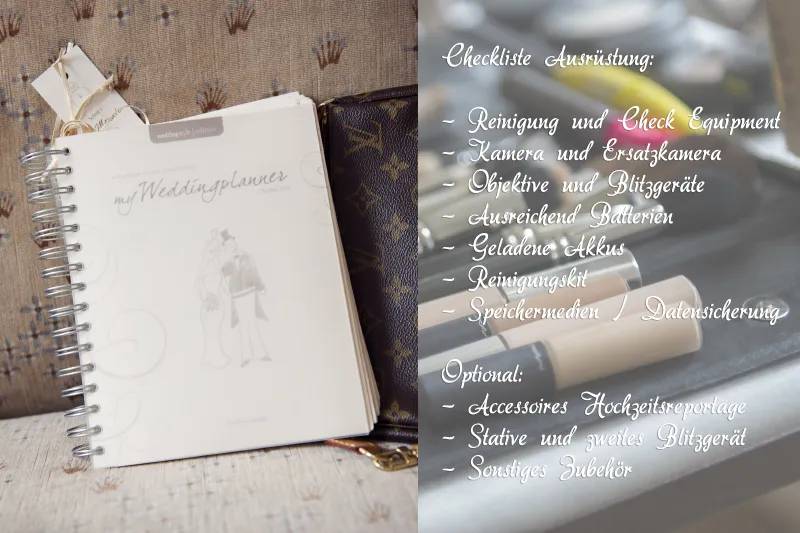 weddingstyle | edition
my Weddingplanner
Checkliste Ausrüstung:
- Reinigung und Check Equipment
- Kamera und Ersatzkamera
- Objektive und Blitzgeräte
- Ausreichend Batterien
- Geladene Akkus
- Reinigungskit
- Speichermedien / Datensicherung
Optional:
- Accessoires Hochzeitsreportage
- Stative und zweites Blitzgerät
- Sonstiges Zubehör